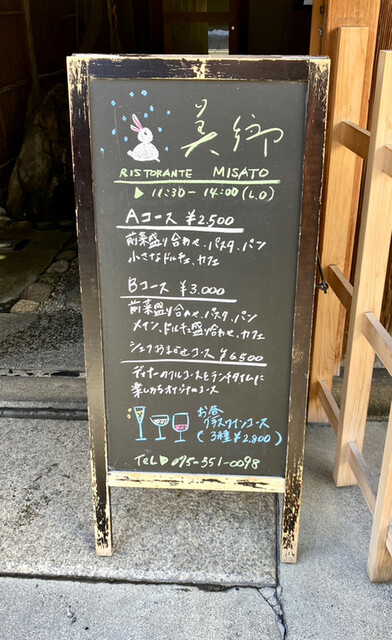 美郷
RISTORANTE MISATO
▶ 11:30 - 14:00 (L.O)
Aコース ¥2,500
前菜盛り合わせ、パスタ、パン
小さなドルチェ、カフェ
Bコース ¥3,000
前菜盛り合わせ、パスタ、パン
メイン、ドルチェ盛り合わせ、カフェ
シェフおまかせコース ¥6,500
ディナーのフルコースをランチタイムに
楽しめるオリジナルコース
お昼
グラスワインコース
(3種 ¥2,800)
TEL▶ 075-551-0098